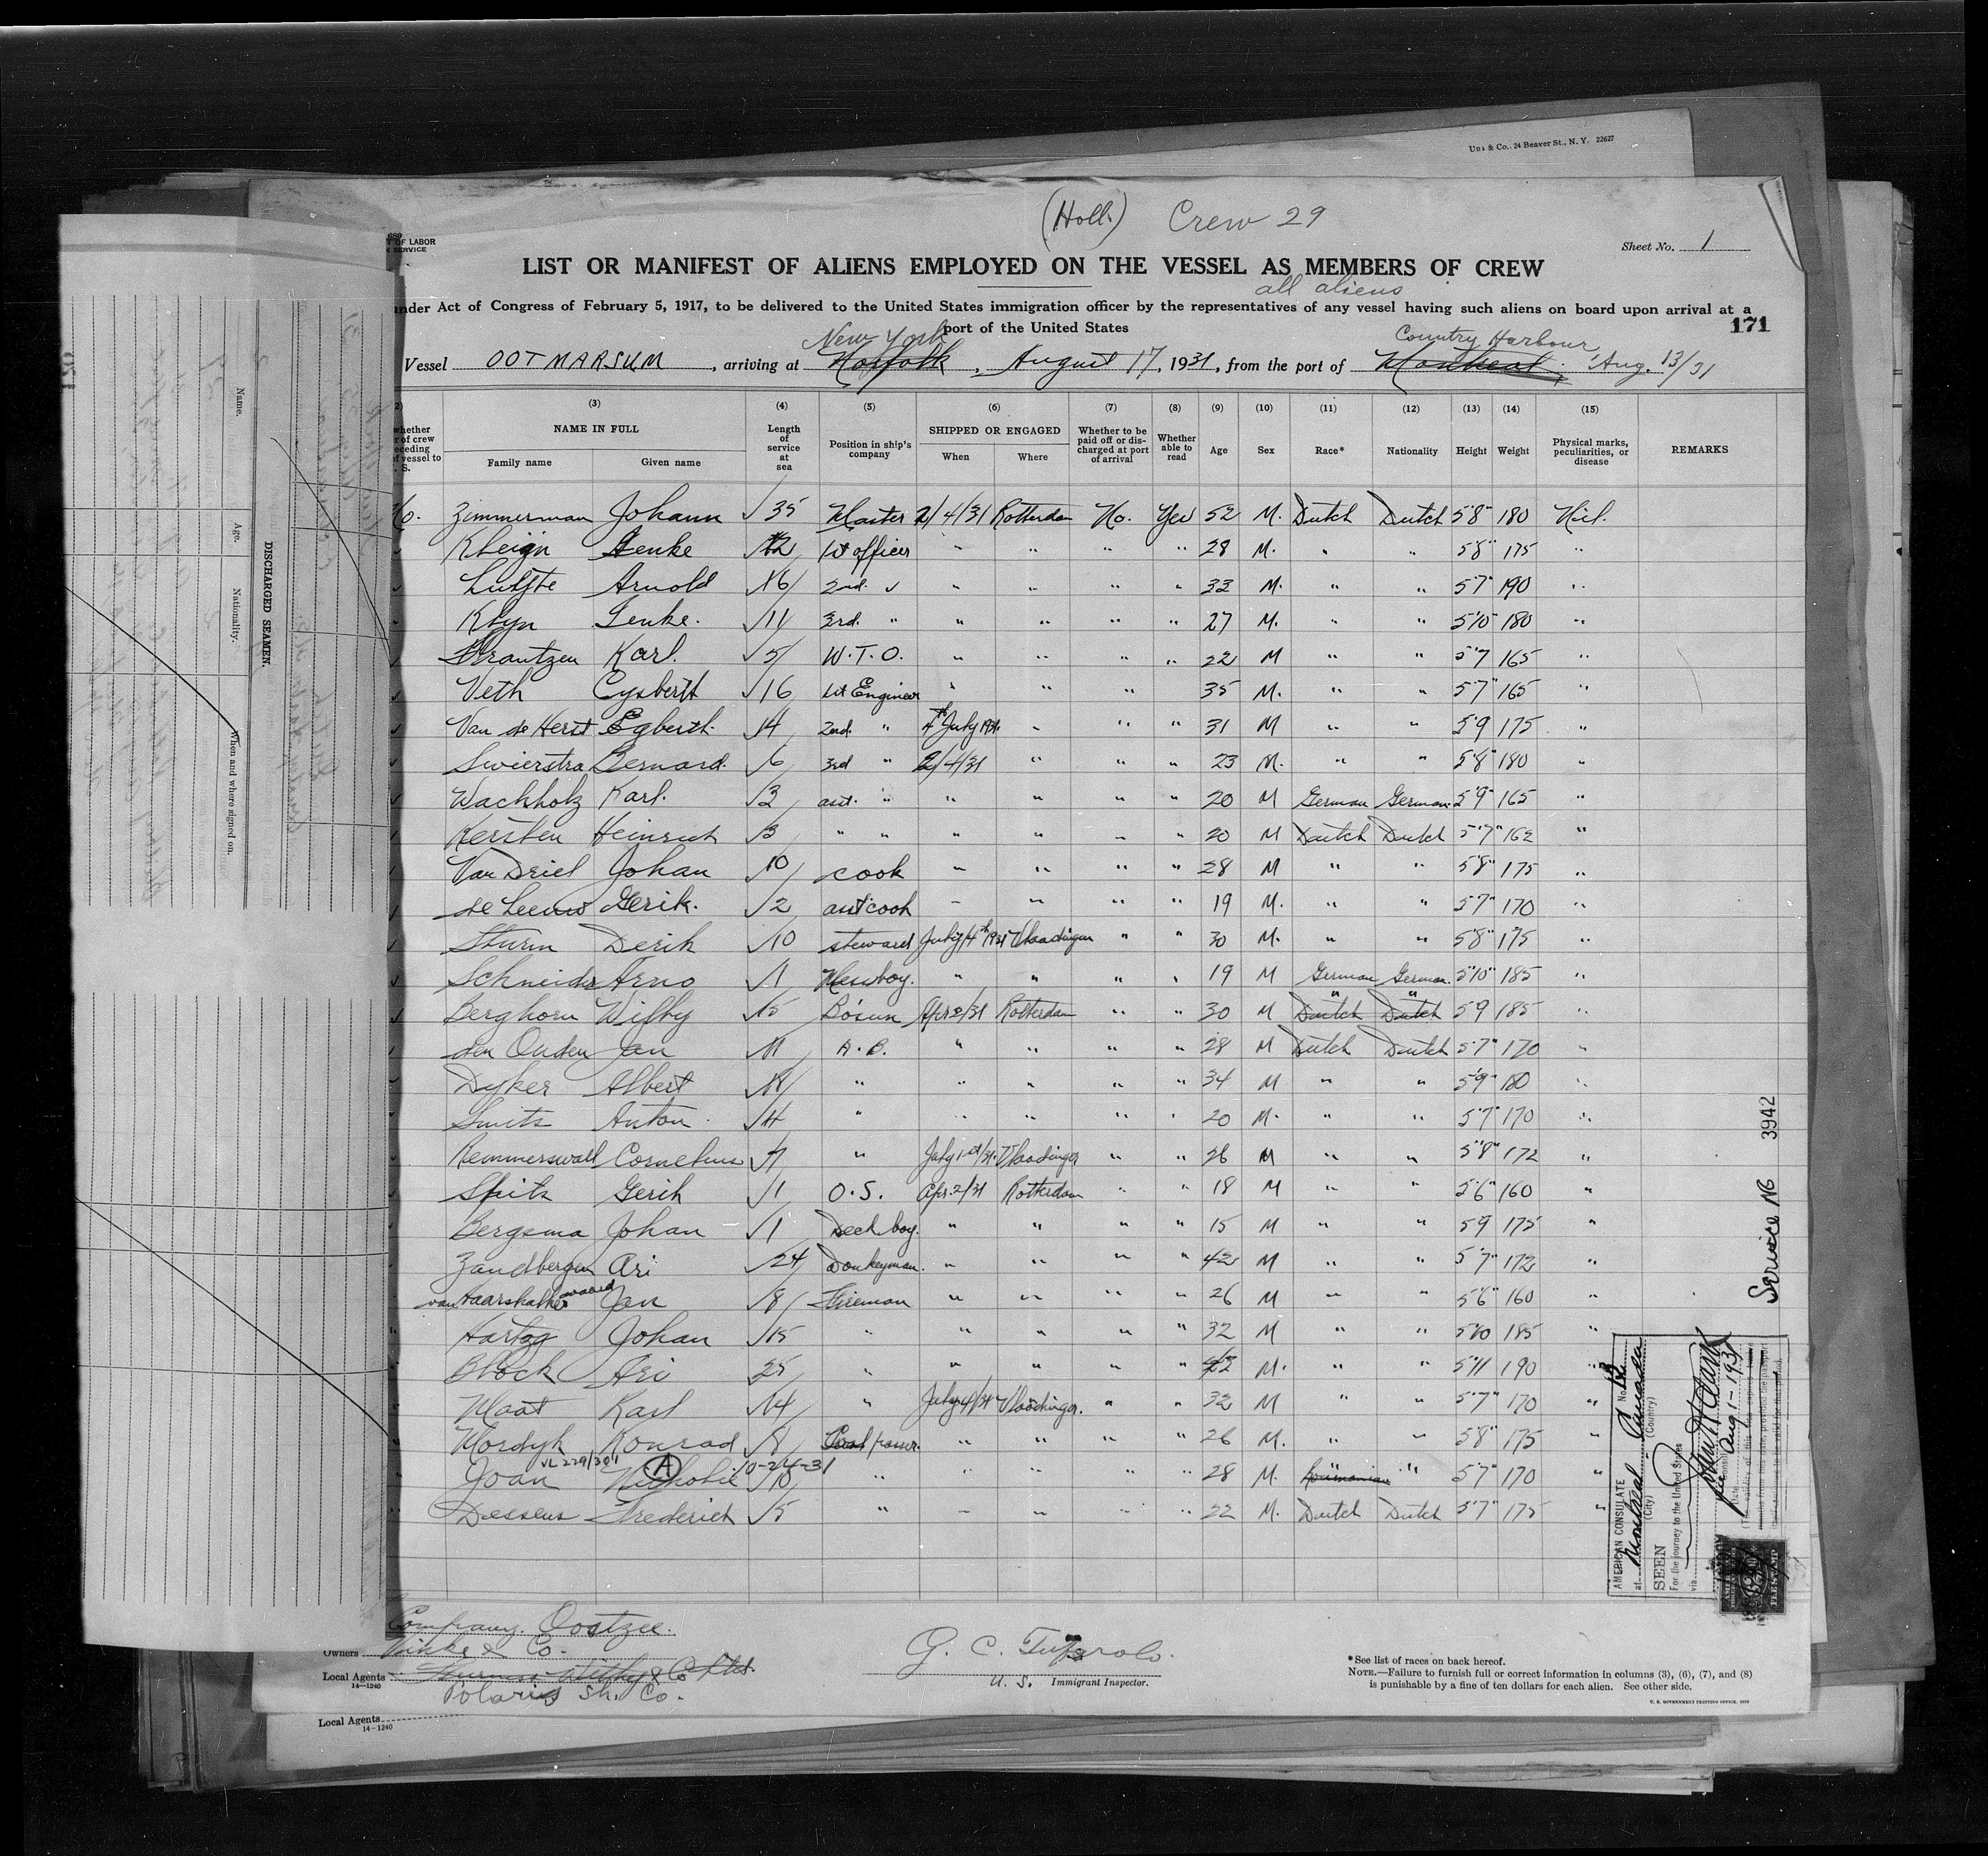 Una & Co., 24 Beaver St., N. Y. 22627
(Holl.) Crew 29
T OF LABOR
SERVICE
Sheet No. 1
LIST OR MANIFEST OF ALIENS EMPLOYED ON THE VESSEL AS MEMBERS OF CREW
all aliens
under Act of Congress of February 5, 1917, to be delivered to the United States immigration officer by the representatives of any vessel having such aliens on board upon arrival at a
port of the United States
171
New York Country Harbour
Vessel OOTMARSUM, arriving at Norfolk, August 17, 1931, from the port of Montreal, Aug. 13/31
(3) (4) (5) (6) (7) (8) (9) (10) (11) (12) (13) (14) (15)
NAME IN FULL Length of service at sea Position in ship's company SHIPPED OR ENGAGED Whether to be paid off or discharged at port of arrival Whether able to read Age Sex Race* Nationality Height Weight Physical marks, peculiarities, or disease REMARKS
Family name Given name When Where
No. Zimmerman Johann √ 35 Master 2/4/31 Rotterdam No. Yes 52 M. Dutch Dutch 5'8" 180 Nil.
Kleign Henke 12 1st officer " " " " 28 M. " " 5'8" 175 "
Arnold √16 2nd. " " " " " 33 M. " " 5'7" 190 "
Klyn Henke. √11 3rd. " " " " " 27 M. " " 5'10" 180 "
Karl. √5 W.T.O. " " " " 22 M " " 5'7 165 "
Veth Cysbertt √16 1st Engineer " " " 35 M. " " 5'7" 165 "
Van de Herst Egbertt. √14 2nd. " 4th July 1931. " " " 31 M " " 5'9 175 "
Swierstra Bernard. √6 3rd " 2/4/31 " " " 23 M. " " 5'8" 180 "
Wachholz Karl. √3 asst. " " " " " 20 M German German 5'9" 165 "
Kersten Heinrich √3 " " " " " " 20 M Dutch Dutch 5'7" 162 "
Van Driel Johan √10 cook " " " " 28 M " " 5'8" 175 "
de Leeuw Gerik. √2 asst cook " " " " 19 M. " " 5'7" 170 "
Sturm Derik √10 steward July 4th 1931 Vlaadingen " " 30 M. " " 5'8" 175 "
Schneider Arno √1 Messboy. " " " " 19 M German German. 5'10" 185 "
Berghorn Willy √15 Bosun Apr 2/31 Rotterdam " " 30 M Dutch Dutch 5'9 185 "
den Ouden Jan √11 A.B. " " " " 28 M Dutch Dutch 5'7" 170 "
Dyker Albert √18 " " " " " 34 M " " 5'9" 180 "
Smits Anton √4 " " " " " 20 M. " " 5'7" 170 "
Remmerswall Cornelius √7 " July 1st/31. Vlaadingen " " 26 M " " 5'8" 172 "
Spits Gerik √1 O.S. Apr. 2/31 Rotterdam " " 18 M " " 5'6" 160 "
Bergsma Johan √1 Deck boy. " " " " 15 M " " 5'9 175 "
Zandbergen Ari √24 Donkeyman. " " " " 42 M " " 5'7" 172 "
Jan √8 Fireman " " " " 26 M " " 5'6" 160 "
Hartog Johan √15 " " " " " 32 M " " 5'10 185 "
Block Ari 25 " " " " " 42 M. " " 5'11 190 "
Maat Karl √14 " July 4/31 Vlaadingen. " " 32 M " " 5'7" 170 "
Mordyk Konrad √8 Coal passer. " " " " 26 M. " " 5'8" 175 "
VL 229/301 (A) 10-24-31
Joan √10 " " " " " 28 M. Roumanian " 5'7" 170 "
Dessens Frederich √5 " " " " " 22 M. Dutch Dutch 5'7" 175 "
Service No 3942
AMERICAN CONSULATE
at Montreal Canada
(City) (Country)
SEEN
For the journey to the United States
via
Aug 1-1931
DISCHARGED SEAMEN.
Name. Age. Nationality. When and where signed on.
Company. Oostzee.
Owners Vinke & Co.
Local Agents Furness Withy & Co Ltd.
14—1240
Polaris Sh. Co.
Local Agents
14—1240
U. S. Immigrant Inspector.
*See list of races on back hereof.
NOTE.—Failure to furnish full or correct information in columns (3), (6), (7), and (8)
is punishable by a fine of ten dollars for each alien. See other side.
U. S. GOVERNMENT PRINTING OFFICE: 1929